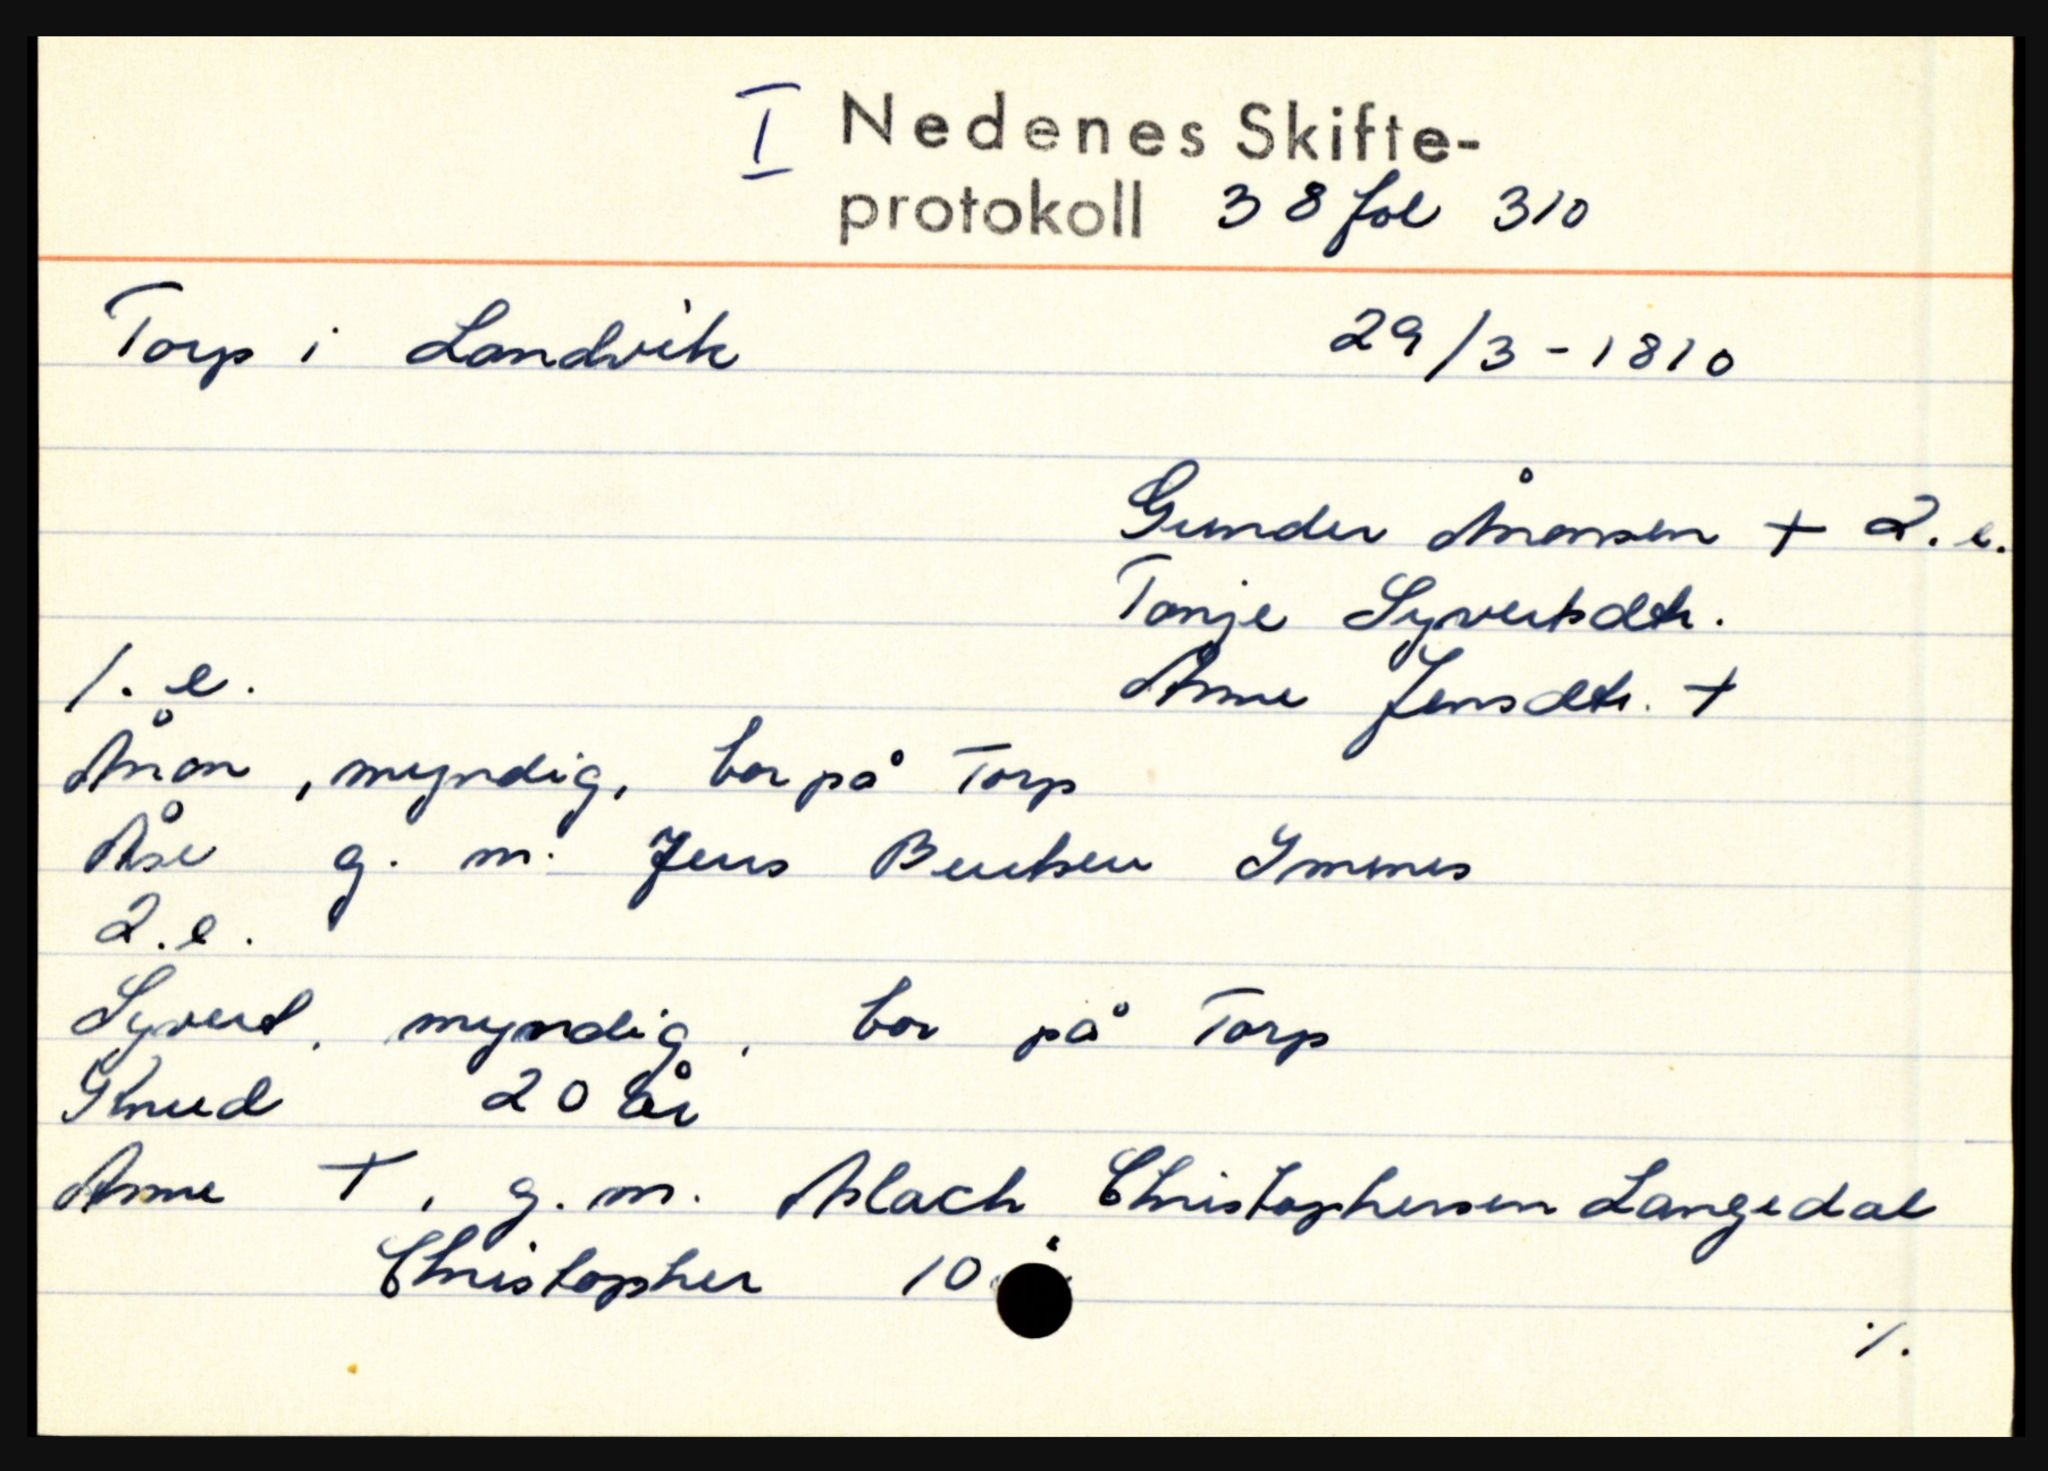 I Nedenes Skifte-
protokoll 38 fol 310
Torp i Landvik 29/3-1810
Gunder Ånonsen + 2.e.
Tonje Syvertsdtr.
1.e. Anne Jensdtr. +
Ånon, myndig, bor på Torp
Åse g. m. Jens Bentsen Immenes
2.e.
Syvert, myndig, bor på Torp
Knud 20 år
Anne +, g. m. Aslach Christophersen Langedal
Christopher 10
./.